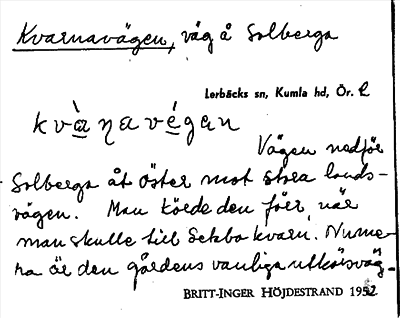 Kvarnavägen, väg å Solberga
Lerbäcks sn, Kumla hd, Ör. l
kvàṇavégan
Vägen nedför
Solberga åt öster mot stora lands-
vägen. Man körde den förr, när
man skulle till Sekba kvarn. Nume-
ra är den gårdens vanliga utkörsväg.
BRITT-INGER HÖJDESTRAND 1952.